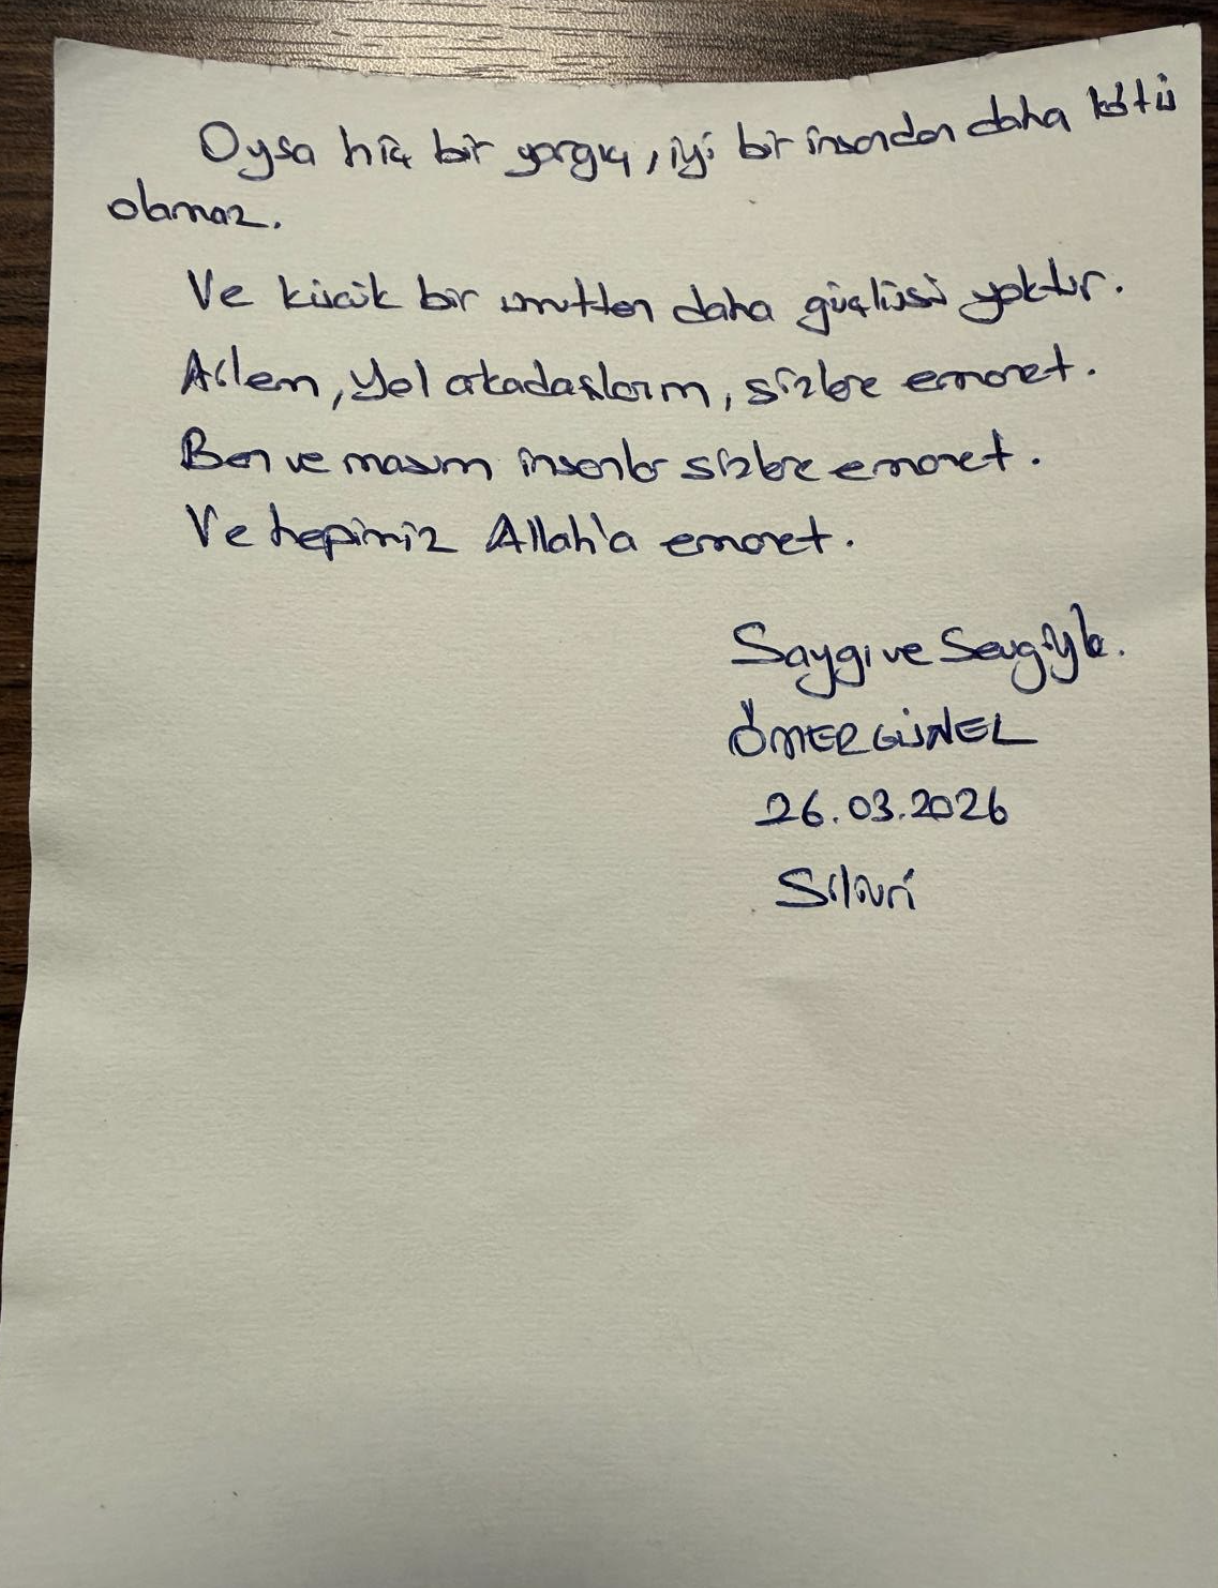 Oysa hiç bir yargıç, iyi bir insandan daha kötü
olamaz.
Ve küçük bir umuttan daha güçlüsü yoktur.
Ailem, Yol arkadaşlarım, sizlere emanet.
Ben ve masum insanlar sizlere emanet.
Ve hepimiz Allah'a emanet.
Saygı ve Sevgiyle.
ÖMER GÜNEL
26.03.2026
Silivri